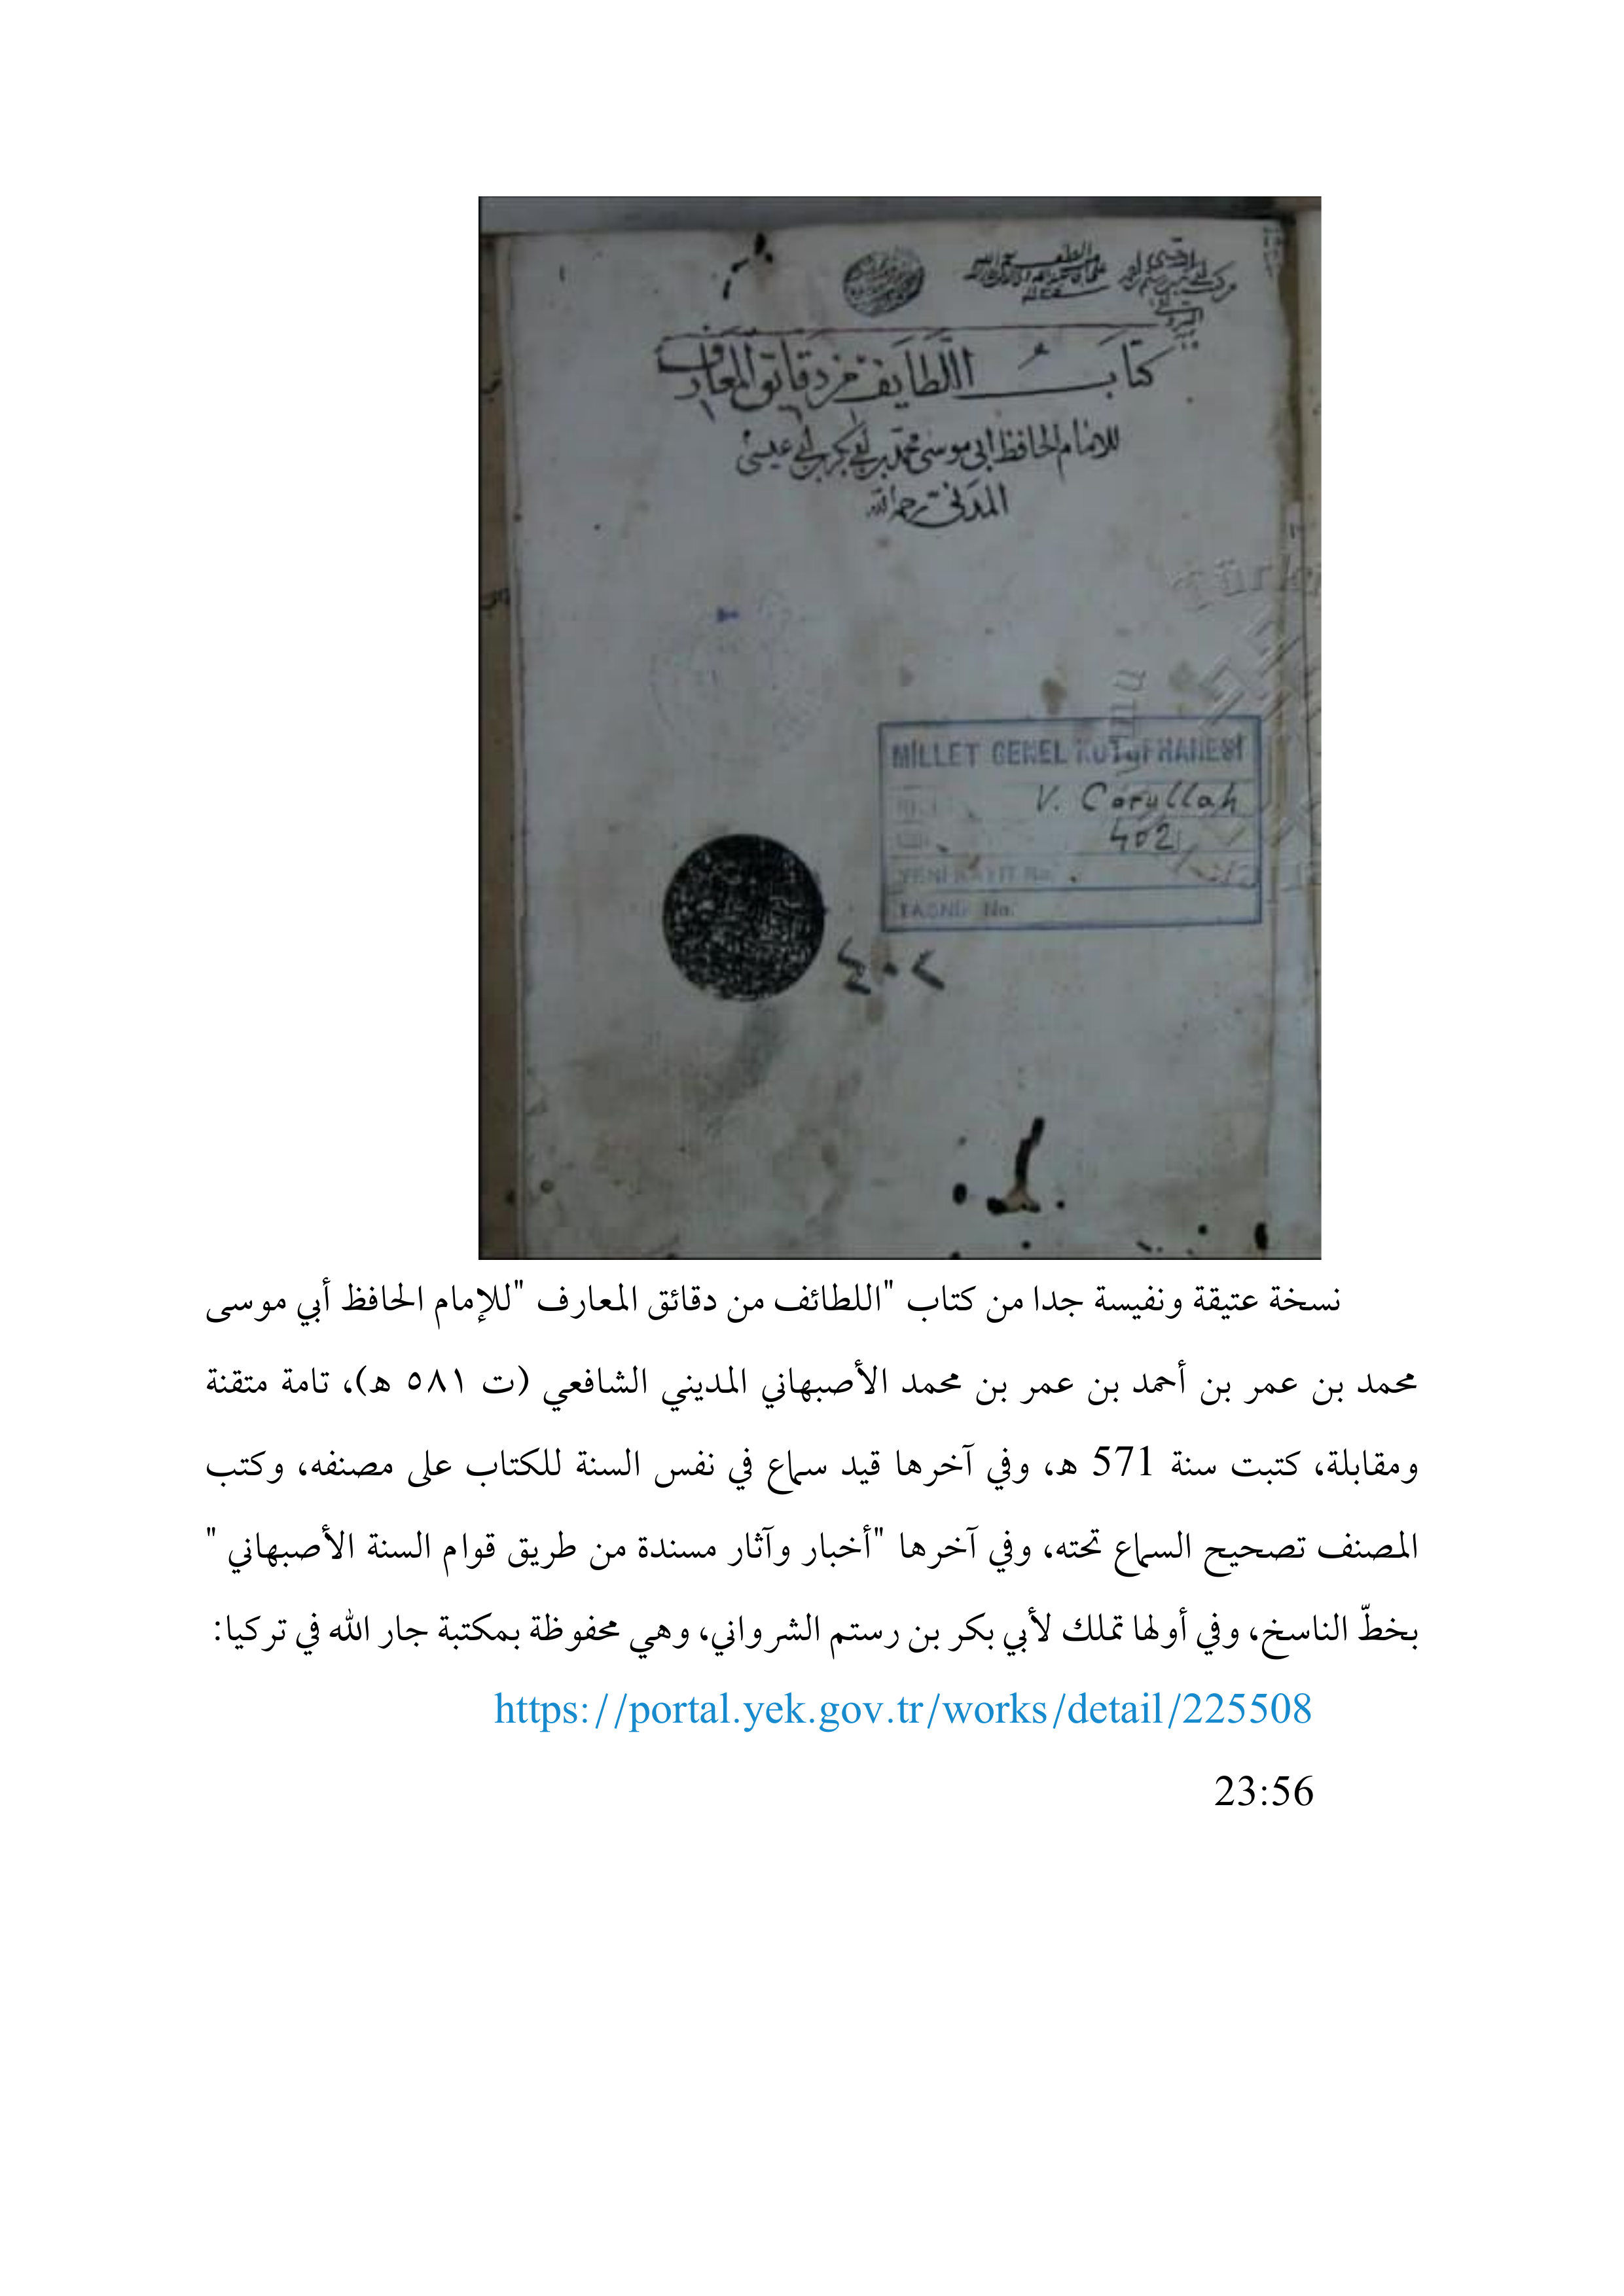 كتاب اللطايف من دقايق المعارف
للامام الحافظ ابي موسى محمد بن ابي بكر بن ابي عيسى
المدني رحمه الله
MİLLET GENEL KÜTÜPHANESİ
V. Carullah
402
YENİ KAYIT No.
TASNİF No.
٤٠٢
نسخة عتيقة ونفيسة جدا من كتاب "اللطائف من دقائق المعارف "للإمام الحافظ أبي موسى
محمد بن عمر بن أحمد بن عمر بن محمد الأصبهاني المديني الشافعي (ت ٥٨١ ه)، تامة متقنة
ومقابلة، كتبت سنة 571 ه، وفي آخرها قيد سماع في نفس السنة للكتاب على مصنفه، وكتب
المصنف تصحيح السماع تحته، وفي آخرها "أخبار وآثار مسندة من طريق قوام السنة الأصبهاني "
بخطّ الناسخ، وفي أولها تملك لأبي بكر بن رستم الشرواني، وهي محفوظة بمكتبة جار الله في تركيا:
https://portal.yek.gov.tr/works/detail/225508
23:56